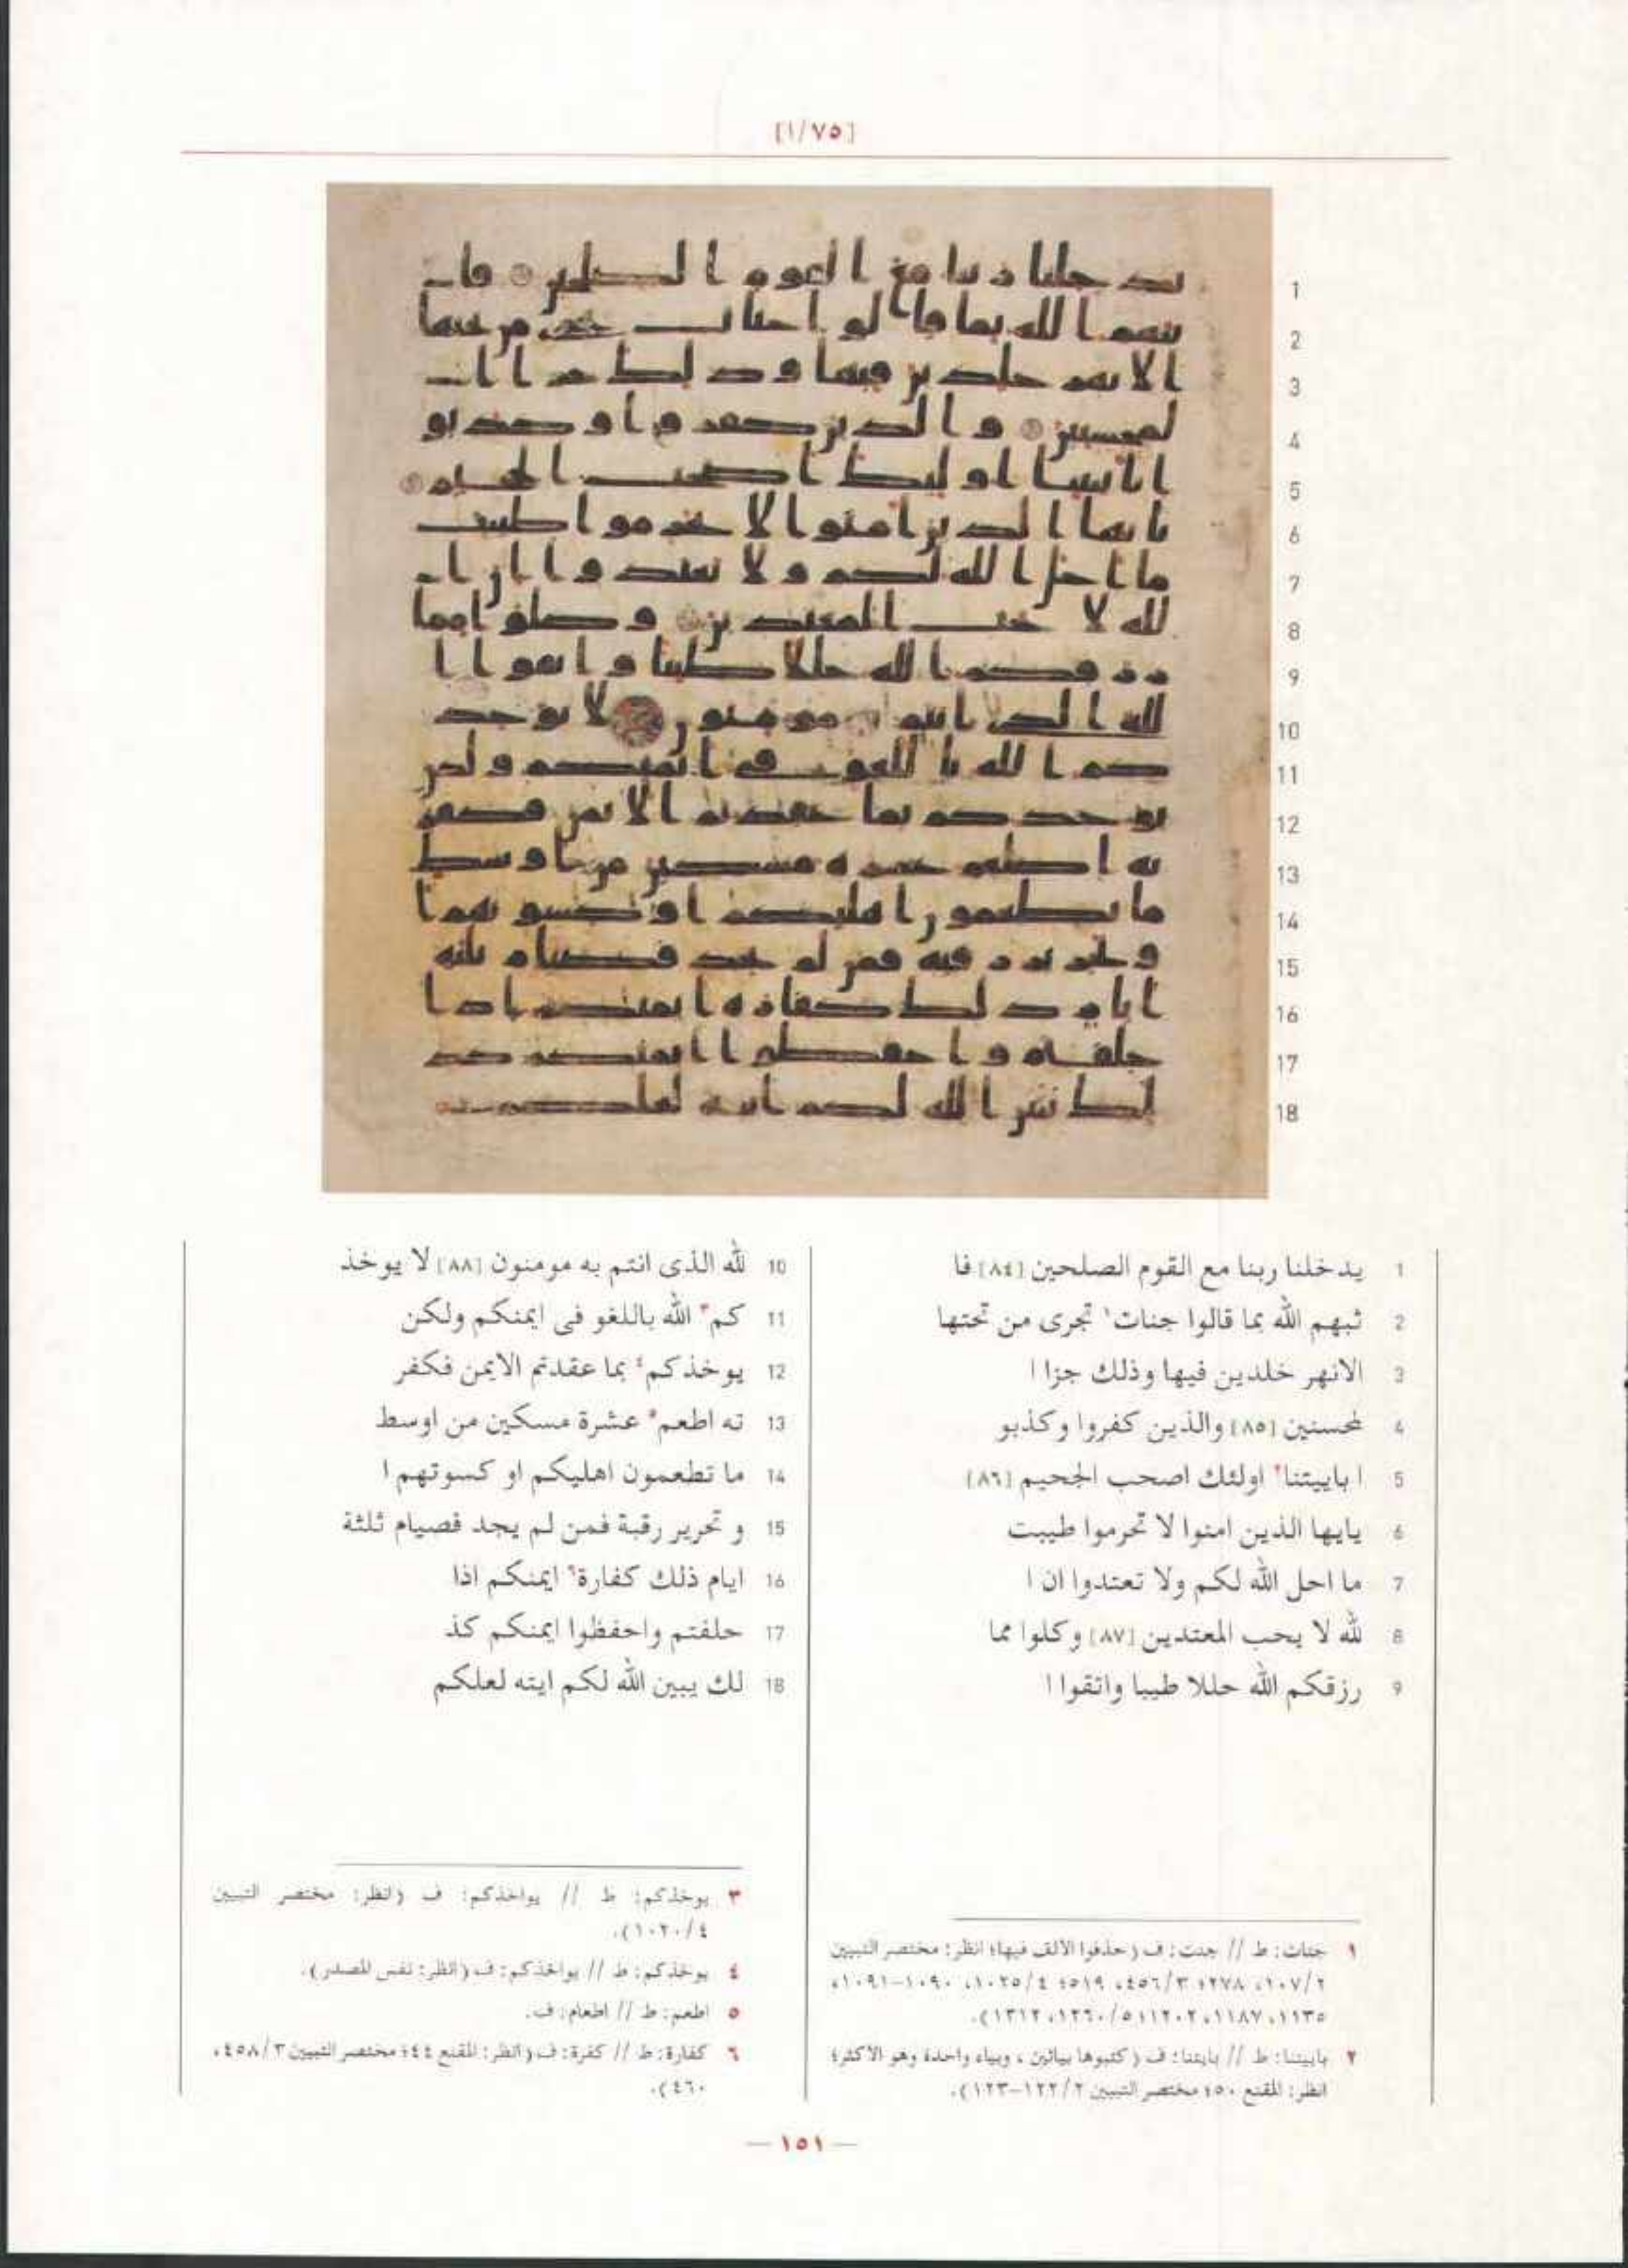 [١/٧٥]
1 يدخلنا ربنا مع القوم الصلحين [٨٤] فا
2 ثبهم الله بما قالوا جنات١ تجرى من تحتها
3 الانهر خلدين فيها وذلك جزا ا
4 لمحسنين [٨٥] والذين كفروا وكذبو
5 ا باييتنا٢ اولئك اصحب الجحيم [٨٦]
6 يايها الذين امنوا لا تحرموا طيبت
7 ما احل الله لكم ولا تعتدوا ان ا
8 لله لا يحب المعتدين [٨٧] وكلوا مما
9 رزقكم الله حللا طيبا واتقوا ا
10 لله الذى انتم به مومنون [٨٨] لا يوخذ
11 كم٣ الله باللغو فى ايمنكم ولكن
12 يوخذكم٤ بما عقدتم الايمن فكفر
13 ته اطعم٥ عشرة مسكين من اوسط
14 ما تطعمون اهليكم او كسوتهم ا
15 و تحرير رقبة فمن لم يجد فصيام ثلثة
16 ايام ذلك كفارة٦ ايمنكم اذا
17 حلفتم واحفظوا ايمنكم كذ
18 لك يبين الله لكم ايته لعلكم
١ جنات: ط // جنت: ف (حذفوا الألف فيها؛ انظر: مختصر التبيين
٢/١٠٧، ٢٧٨؛ ٣/٤٥٦، ٥١٩؛ ٤/١٠٢٥، ١٠٩٠-١٠٩١،
١١٣٥، ١١٨٧، ١٢٠٢؛ ٥/١٢٦٠، ١٣١٢).
٢ باييتنا: ط // بايتنا: ف (كتبوها بيائين، وبياء واحدة وهو الأكثر؛
انظر: المقنع ٥٠؛ مختصر التبيين ٢/١٢٢-١٢٣).
٣ يوخذكم: ط // يواخذكم: ف (انظر: مختصر التبيين
٤/١٠٢٠).
٤ يوخذكم: ط // يواخذكم: ف (انظر: نفس المصدر).
٥ اطعم: ط // اطعام: ف.
٦ كفارة: ط // كفرة: ف (انظر: المقنع ٤٤؛ مختصر التبيين ٣/٤٥٨،
٤٦٠).
— ١٥١ —